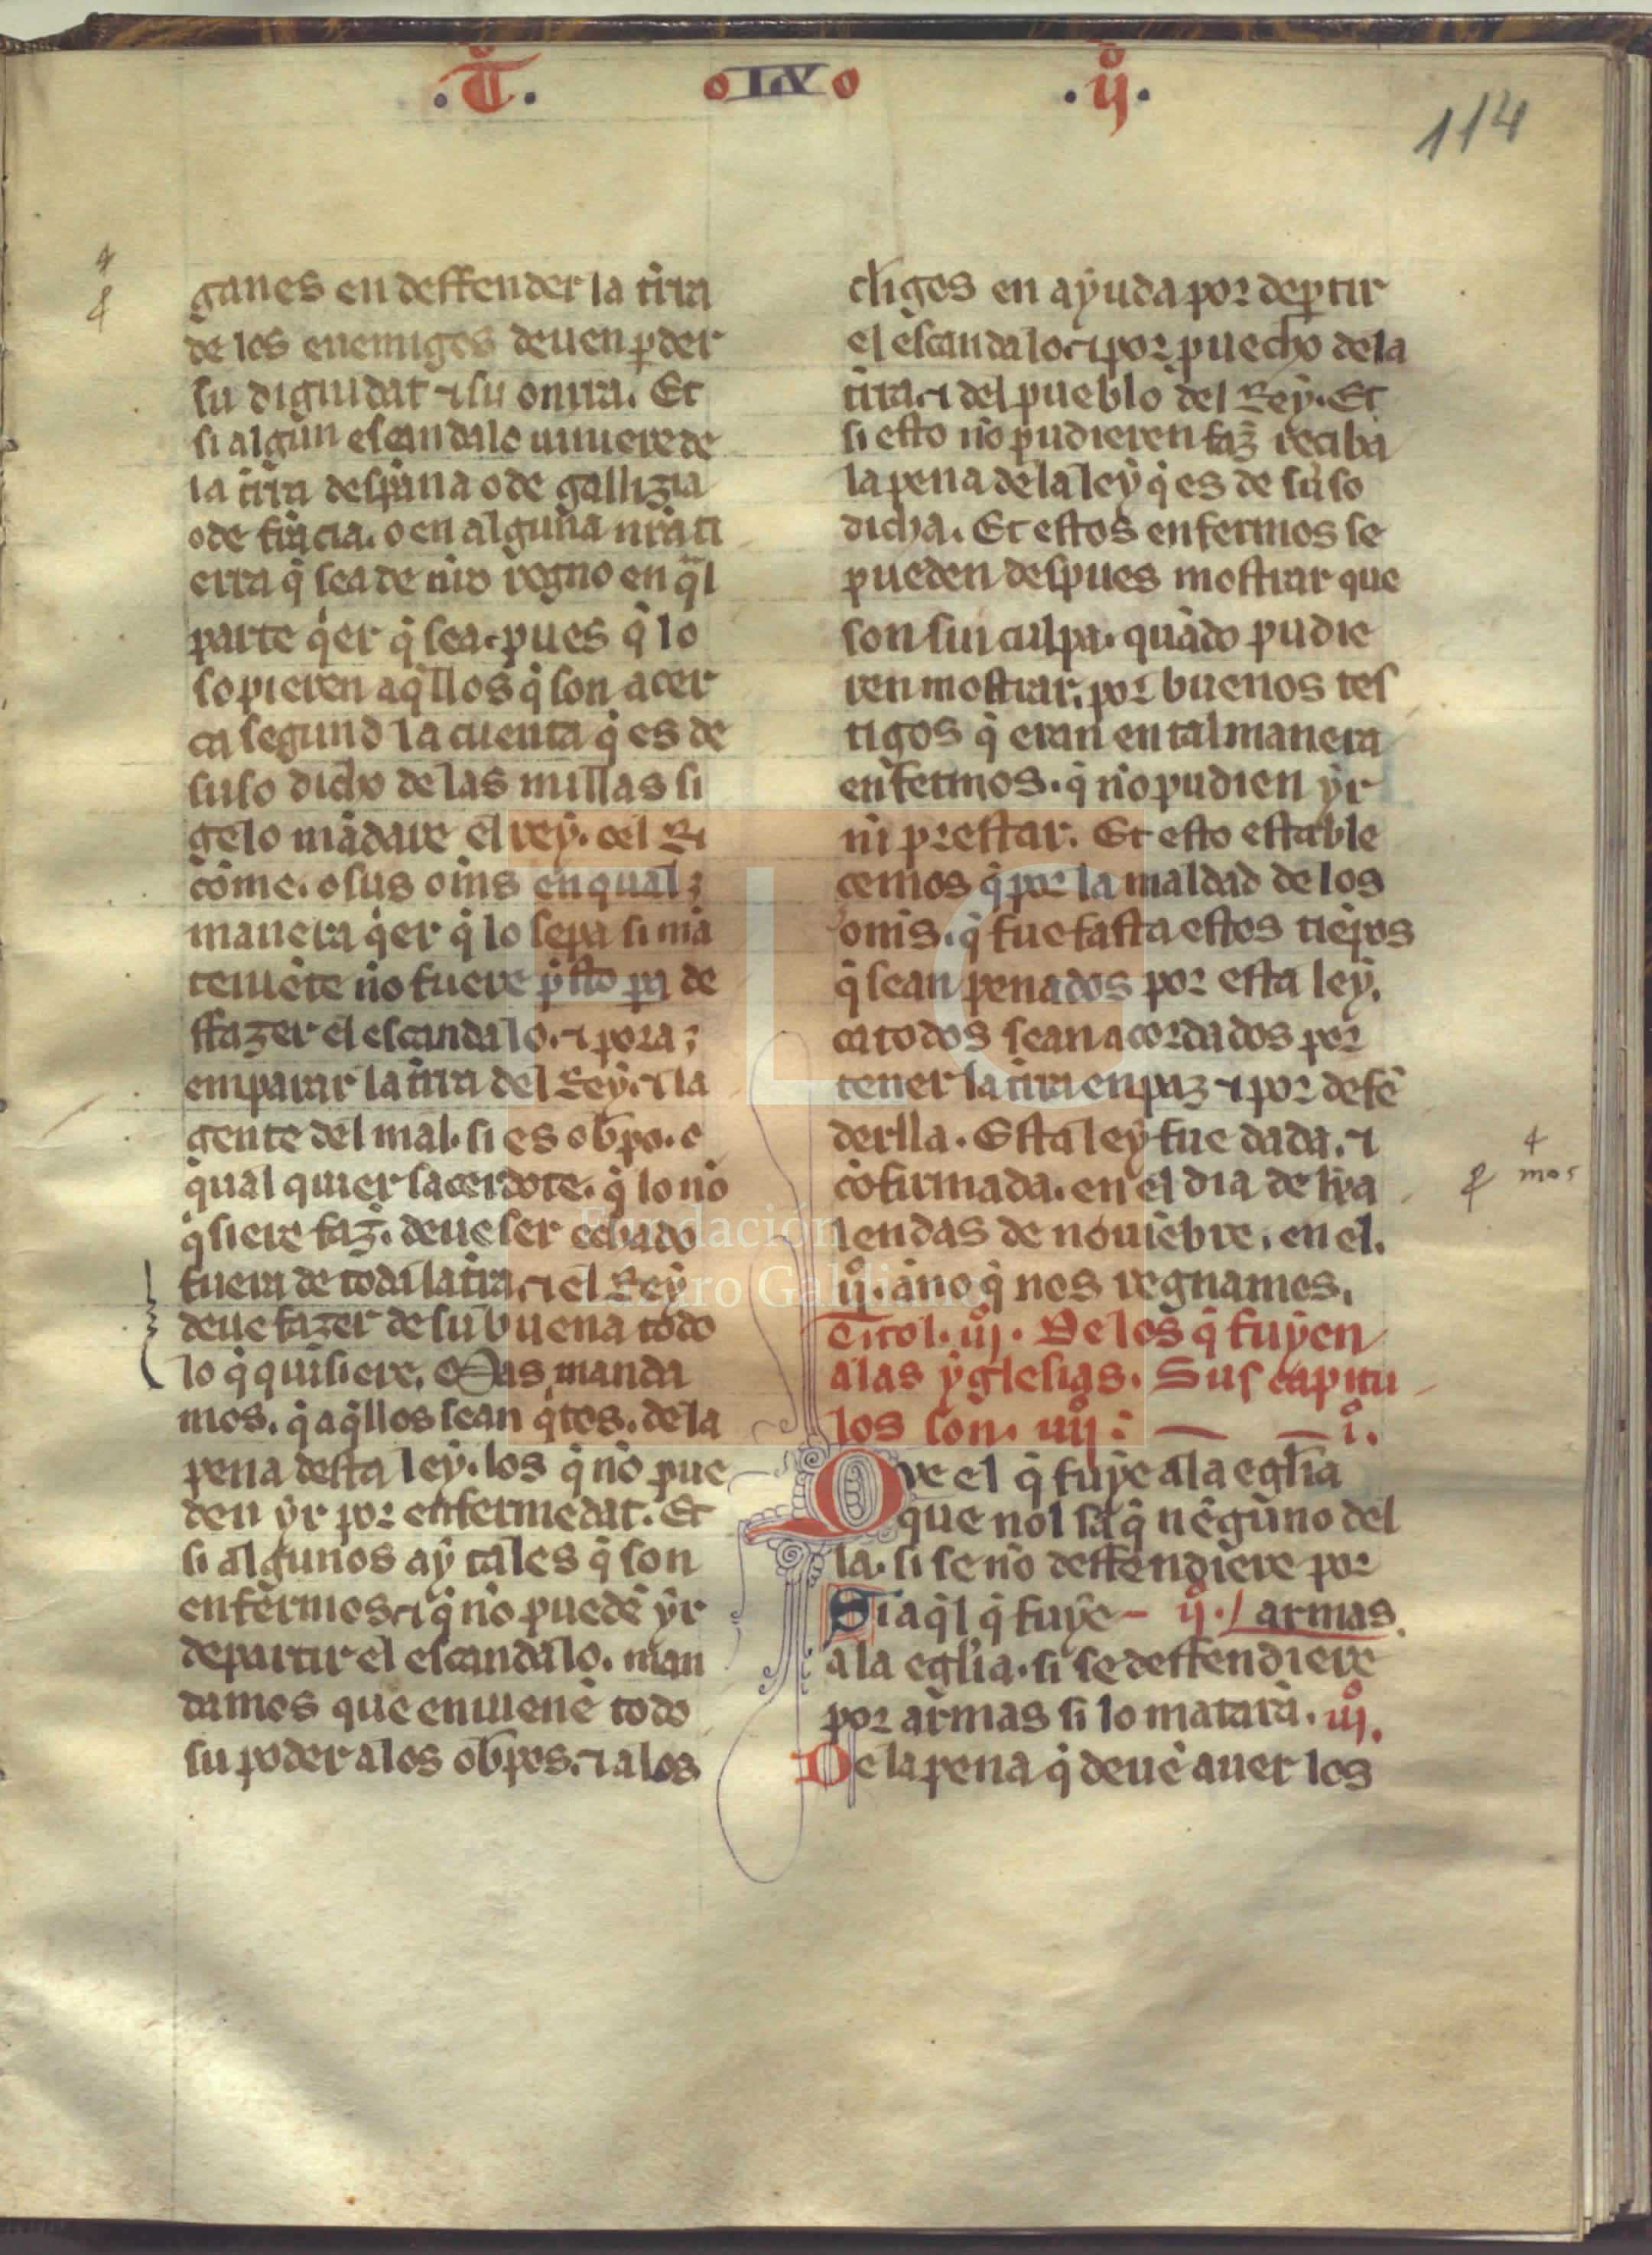 .T. o LIX o .ij.
114
ganes en deffender la tirra
de los enemigos deuen perder
su dignidat ⁊ su onrra. Et
si algun escandalo uiniere de
la tirra despana o de gallizia
o de francia. o en alguna nra ti
erra q̇ sea de nro regno en q̃l
parte q̇er q̇ sea. pues q̇ lo
sopieren aq̇llos q̇ son acer
ca segund la cuenta q̇ es de
suso dicho de las millas si
gelo mãdare el rey. o el Ri
come. o sus om̃s en qual
manera q̇er q̇ lo sepa si mã
teniẽte nõ fuere p̃sto pa de
ffazer el escandalo. ⁊ pora
emparar la tirra del Rey. ⁊ la
gente del mal. si es obp̃o. o
qual quier sacerdote. q̇ lo nõ
q̇siere faz̃. deue ser echado
fuera de toda la tirra. ⁊ el Rey
deue fazer de su buena todo
lo q̇ quisiere. Mas manda
mos. q̇ aq̇llos sean q̇tos. de la
pena desta ley. los q̇ nõ pue
den yr por enfermedat. Et
si algunos ay tales q̇ son
enfermos. ⁊ q̇ nõ puedẽ yr
departir el escandalo. man
damos que enuienẽ todo
su poder a los obp̃os. ⁊ a los
cl̃igos en ayuda por dep̱tir
el escandalo. ⁊ por puecho de la
tirra. ⁊ del pueblo del Rey. Et
si esto nõ pudieren faz̃ reciba
la pena de la ley q̇ es de suso
dicha. Et estos enfermos se
pueden despues mostrar que
son sin culpa. quãdo pudie
ren mostrar. por buenos tes
tigos q̇ eran en tal manera
enfermos. q̇ nõ pudien yr
ni prestar. Et esto estable
cemos q̇ por la maldad de los
om̃s. q̇ fue fasta estos tiẽpos
q̇ sean penados por esta ley.
ca todos sean acordados por
tener la tirra en paz ⁊ por defẽ
derlla. Esta ley fue dada. ⁊
cõfirmada. en el dia de kra
lendas de nouiẽbre. en el.
ij. ãno q̇ nos regnamos.
Titol. iij. De los q̇ fuyen
a las yglesias. Sus capitu
los son. iiij: i.
Qve el q̇ fuye a la egl̃ia
que nol saq̇ nẽguno del
la. si se nõ deffendiere por
Si aq̇l q̇ fuye ij. / armas.
a la egl̃ia. si se deffendiere
por armas si lo matarã. iij.
De la pena q̇ deuẽ auer los
mos
FLG
Fundación
Lázaro Galdiano